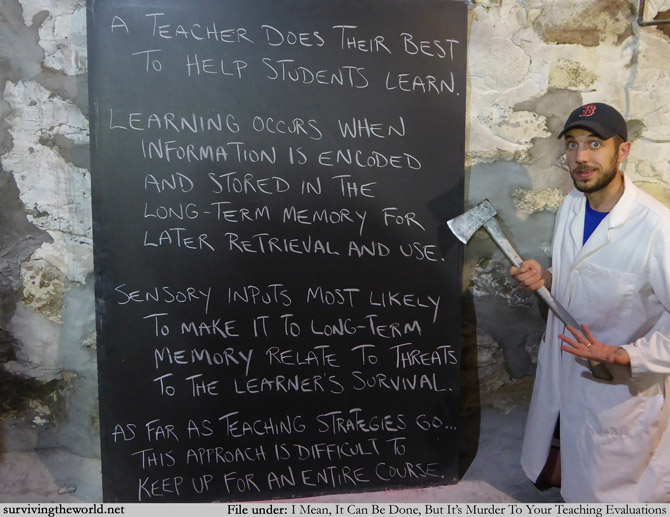 A TEACHER DOES THEIR BEST
TO HELP STUDENTS LEARN.
LEARNING OCCURS WHEN
INFORMATION IS ENCODED
AND STORED IN THE
LONG-TERM MEMORY FOR
LATER RETRIEVAL AND USE.
SENSORY INPUTS MOST LIKELY
TO MAKE IT TO LONG-TERM
MEMORY RELATE TO THREATS
TO THE LEARNER'S SURVIVAL.
AS FAR AS TEACHING STRATEGIES GO...
THIS APPROACH IS DIFFICULT TO
KEEP UP FOR AN ENTIRE COURSE.
B
survivingtheworld.net File under: I Mean, It Can Be Done, But It's Murder To Your Teaching Evaluations